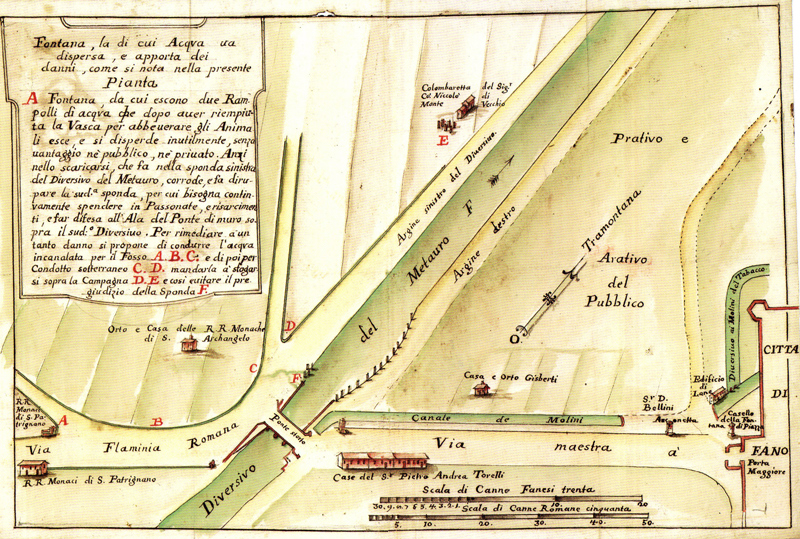 Fontana, la di cui Acqva va
dispersa, e apporta dei
danni, come si nota nella presente
Pianta
A Fontana, da cui escono due Ram-
polli di acqva che dopo auer riempiu-
ta la Vasca per abbeuerare gli Anima
li esce, e si disperde inutilmente, senza
uantaggio nè pubblico, nè priuato. Anzi
nello scaricarsi, che fa nella sponda sinistra
del Diversivo del Metauro, corrode, e fa diru-
pare la sud.ª sponda, per cui bisogna contin-
vamente spendere in Passonate, e risarcimen
ti, e far difesa all'Ala del Ponte di muro so-
pra il sud.º Diversivo. Per rimediare a un
tanto danno si propone di condurre l'acqva
incanalata per il Fosso A.B.C. e di poi per
Condotto sotterraneo C.D. mandarla a sfogar
si sopra la Campagna D.E e così euitare il pre
giudizio della Sponda F.
Colombaretta del Sig.r
Co: Niccolò di
Monte Vecchio
E
Argine sinistro del Diuersiuo
Diversivo
del Metauro F
Argine destro
Prativo e
Arativo
del
Pubblico
Tramontana
O
Orto e Casa delle R.R. Monache
di S. Archangelo
D
C
F
Casa e Orto Gisberti
R.R.
Monaci
di S. Pa-
trignano
A
B
Via Flaminia Romana
Ponte
R.R. Monaci di S. Patrignano
Canale de Molini
Via maestra à
S.r D.
Bellini
Edificio
di
Lane
Diversiuo ai Molini del Tabacco
Casello
della Fon-
tana di Piazza
CITTA
DI
FANO
Porta
Maggiore
Case del S.r Pietro Andrea Torelli
Scala di Canne Fanesi trenta
10. 20
Scala di Canne Romane cinquanta
5. 10. 20. 30. 40. 50.